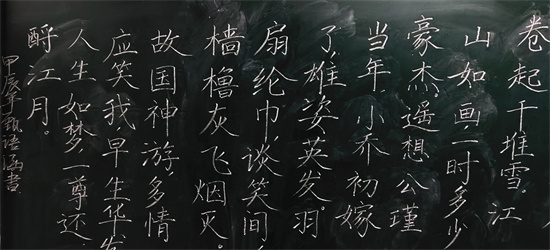 卷起千堆雪。江
山如画,一时多少
豪杰。遥想公瑾
当年,小乔初嫁
了,雄姿英发。羽
扇纶巾,谈笑间,
樯橹灰飞烟灭。
故国神游,多情
应笑我,早生华发
人生如梦,一尊还
酹江月。
甲辰年甄语涵书